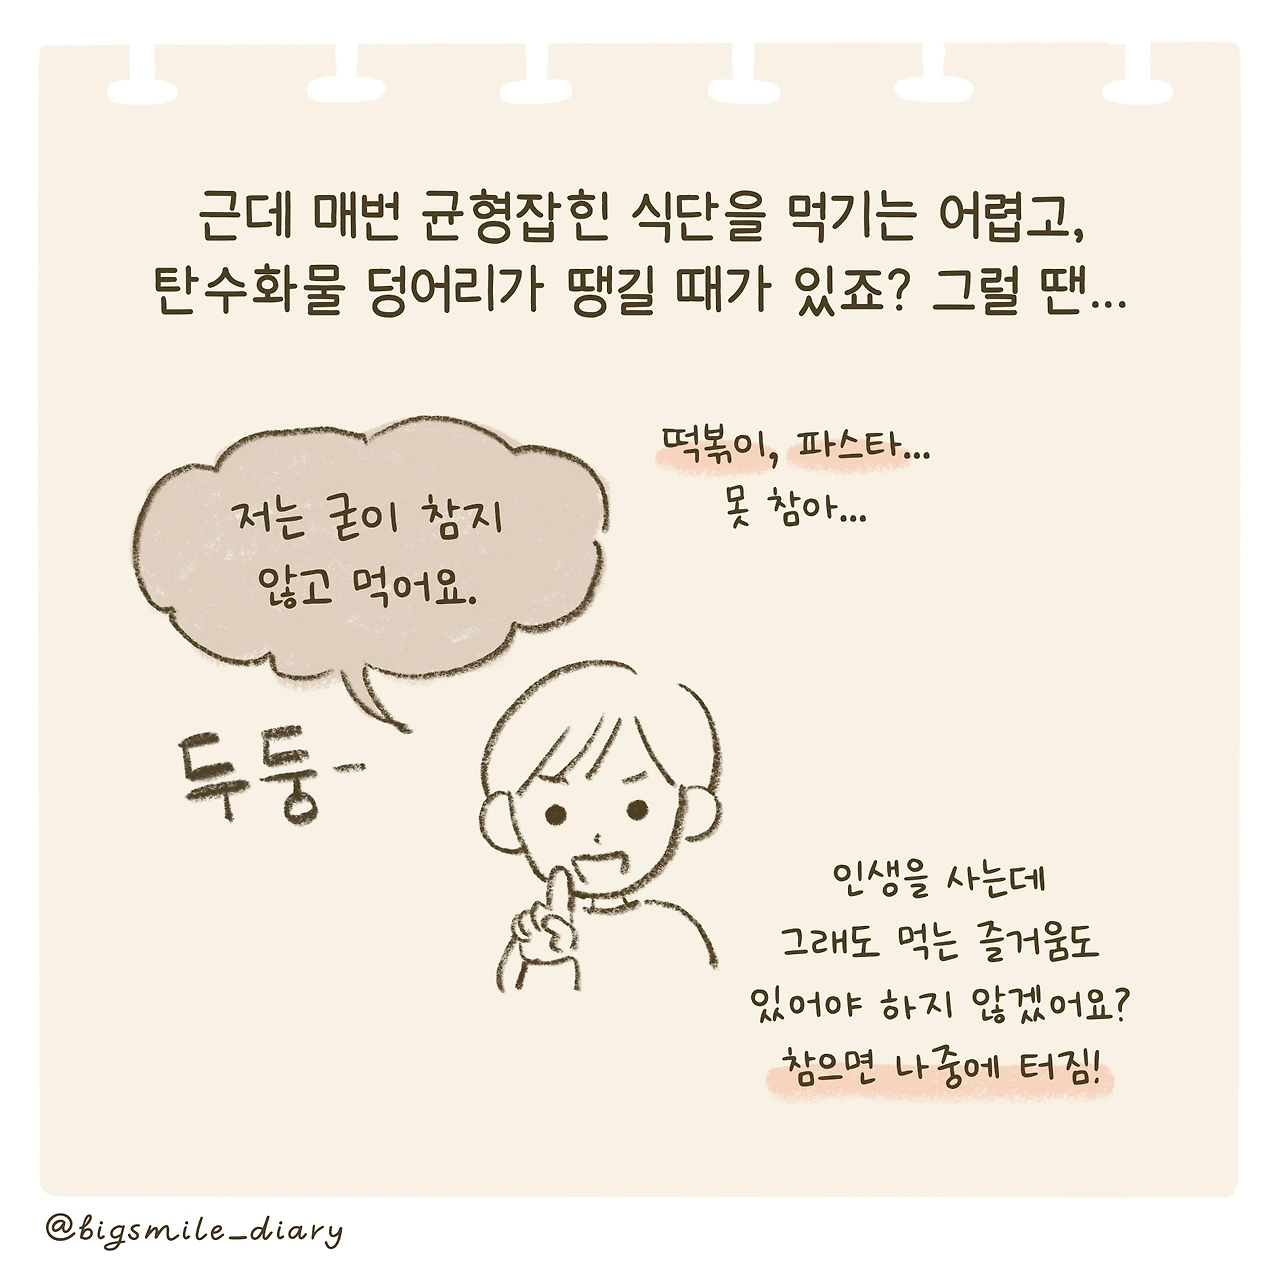 근데 매번 균형잡힌 식단을 먹기는 어렵고,
탄수화물 덩어리가 땡길 때가 있죠? 그럴 땐...
떡볶이, 파스타...
못 참아...
저는 굳이 참지
않고 먹어요.
두둥-
인생을 사는데
그래도 먹는 즐거움도
있어야 하지 않겠어요?
참으면 나중에 터짐!
@bigsmile_diary